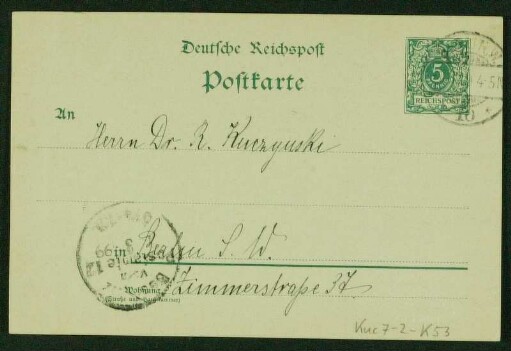 Deutsche Reichspost
Postkarte
5
REICHSPOST
N.W.
4-5N
An
Herrn Dr. R. Kuczynski
in Berlin S. W.
Wohnung
Zimmerstraße 37
(Straße und Hausnummer)
Kuc 7-2-K53